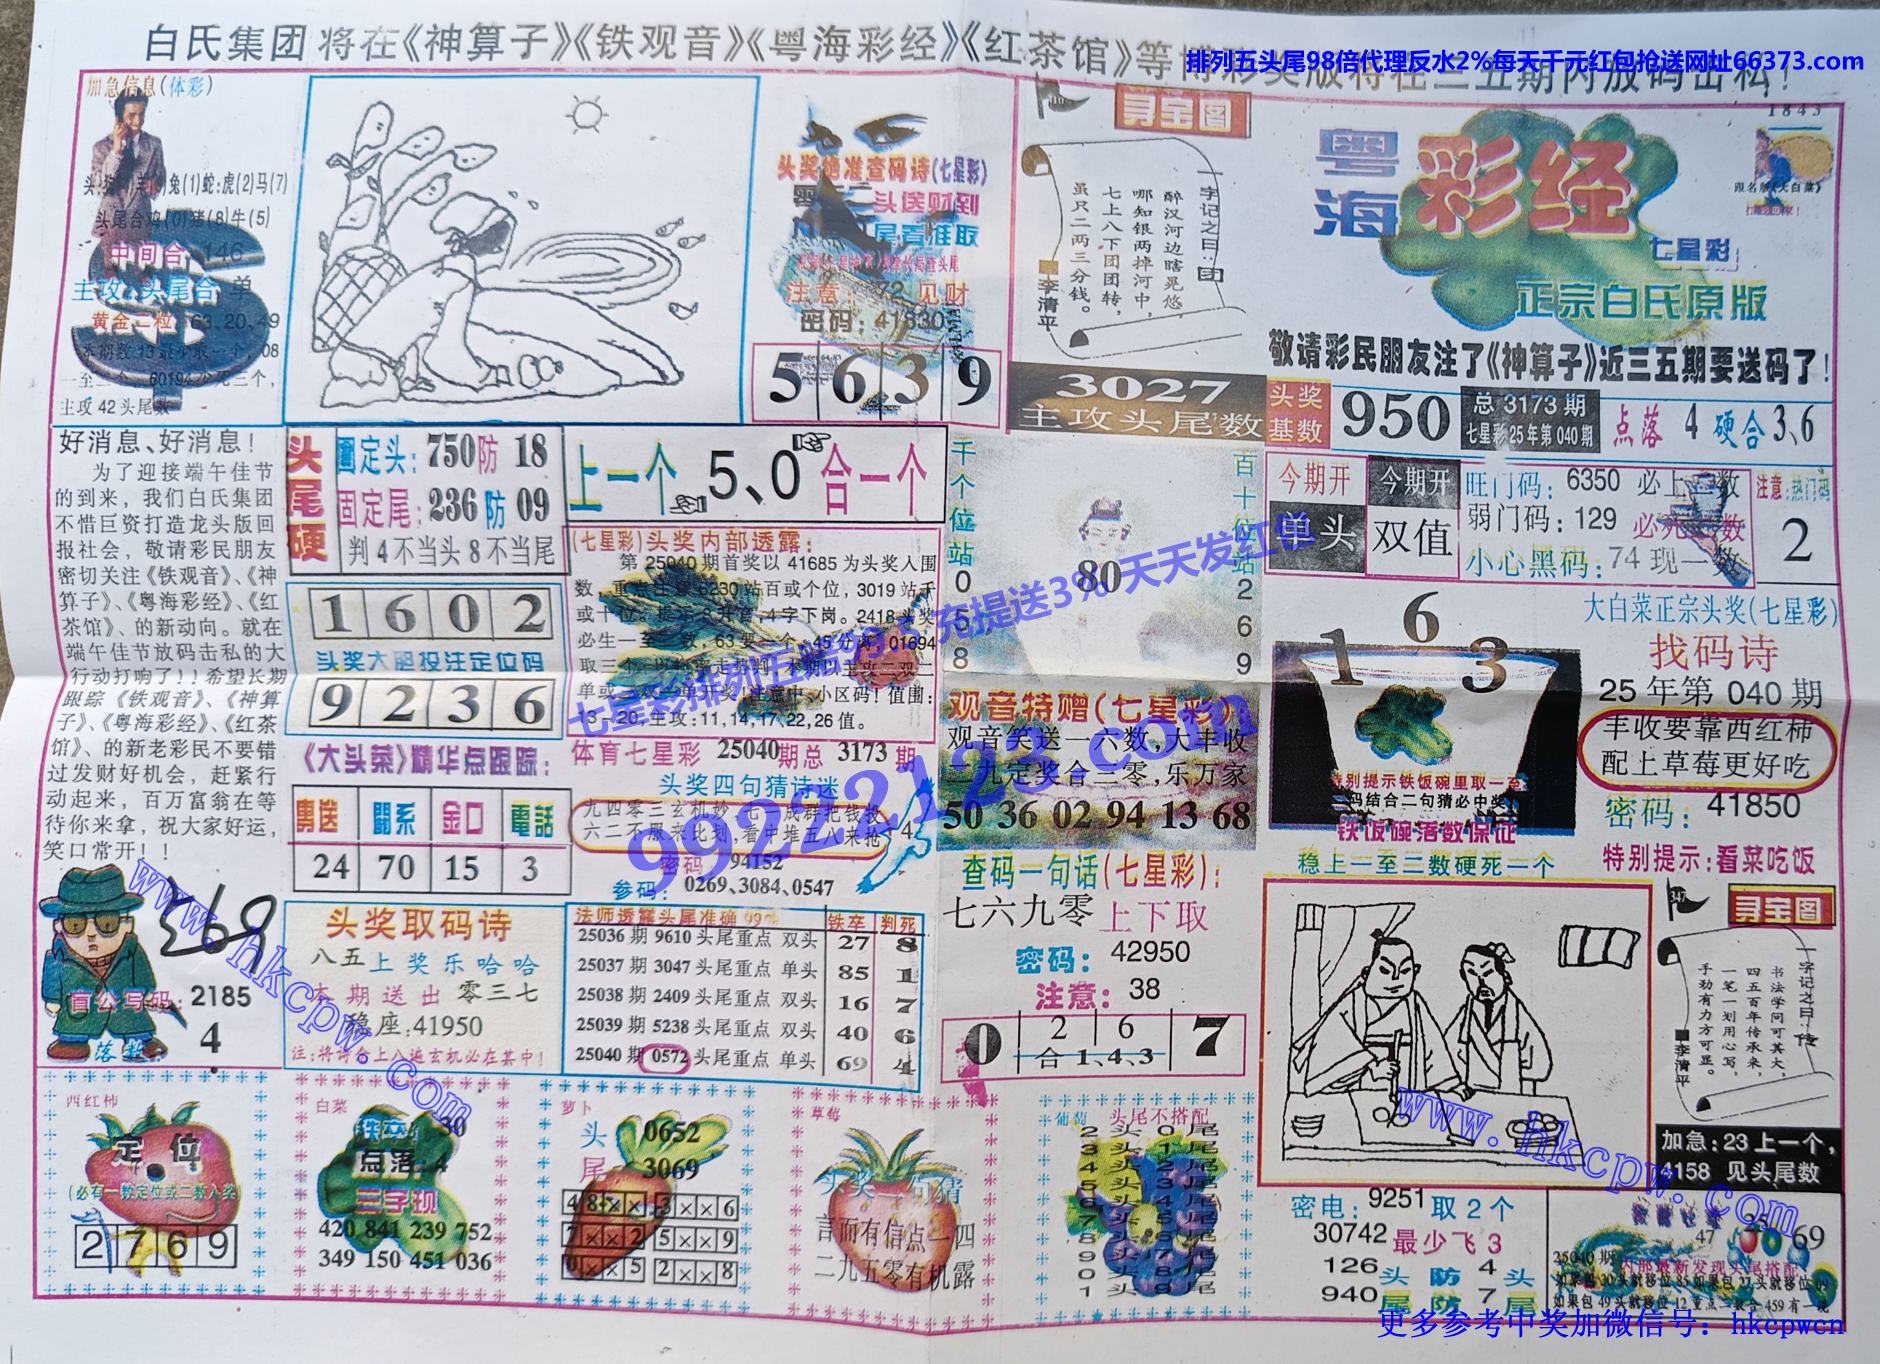 白氏集团 将在《神算子》《铁观音》《粤海彩经》《红茶馆》等
排列五头尾98倍代理反水2%每天千元红包抢送网址66373.com
加急信息(体彩)
兔(1)蛇:虎(2)马(7)
头尾合鸡(0)猪(8)牛(5)
中间合 146
主攻:头尾合 单
黄金二粒:63、20、49
主攻 42 头尾
头奖绝准查码诗(七星彩)
头送财到
尾看准取
注意: 72 见财
密码: 41830
5 6 3 9
寻宝图
一字记之曰:团
醉汉河边瞎晃悠,
哪知银两掉河中,
七上八下团团转,
虽只二两三分钱。
■李清平
3027
主攻头尾数
1843
粤海
彩经
七星彩
正宗白氏原版
敬请彩民朋友注了《神算子》近三五期要送码了!
头奖基数
950
总 3173 期
七星彩25年第 040 期
点落 4 硬合 3、6
今期开
单头
今期开
双值
旺门码: 6350 必上一数
弱门码: 129 必死一数
小心黑码: 74 现一数
注意:热门码
2
好消息、好消息!
为了迎接端午佳节
的到来,我们白氏集团
不惜巨资打造龙头版回
报社会,敬请彩民朋友
密切关注《铁观音》、《神
算子》、《粤海彩经》、《红
茶馆》、的新动向。就在
端午佳节放码击私的大
行动打响了!!希望长期
跟踪《铁观音》、《神算
子》、《粤海彩经》、《红茶
馆》、的新老彩民不要错
过发财好机会,赶紧行
动起来,百万富翁在等
待你来拿,祝大家好运,
笑口常开!!
头尾硬
固定头: 750 防 18
固定尾: 236 防 09
判 4 不当头 8 不当尾
上一个 5、0 合一个
1 6 0 2
头奖大胆投注定位码
9 2 3 6
(七星彩)头奖内部透露:
第 25040 期首奖以 41685 为头奖入围
数,重点注意 6230 站百或个位,3019 站千
体育七星彩 25040期总 3173 期
头奖四句猜诗谜
密码 94152
参码: 0269、3084、0547
《大头菜》精华点跟踪:
勇送 关系 金口 電話
24 70 15 3
千个位站 0 5 6 8
百十位站 2 6 9
80
观音特赠(七星彩)
观音笑送一六数,大丰收
二九定奖合三零,乐万家
50 36 02 94 13 68
1 6 3
铁饭碗落数保证
稳上一至二数硬死一个
大白菜正宗头奖(七星彩)
找码诗
25 年第 040 期
丰收要靠西红柿
配上草莓更好吃
密码: 41850
特别提示:看菜吃饭
七星彩排列五赔99.5 充提送3% 天天发红包
99222123.com
www.hkcpw.com
2185
落数: 4
头奖取码诗
八五上奖乐哈哈
本期送出零三七
稳座:41950
法师透露头尾准确 99% 铁卒 判死
25036 期 9610 头尾重点 双头 27 8
25037 期 3047 头尾重点 单头 85 1
25038 期 2409 头尾重点 双头 16 7
25039 期 5238 头尾重点 双头 40 6
25040 期 0572 头尾重点 单头 69 4
查码一句话(七星彩):
七六九零 上下取
密码: 42950
注意: 38
0 2 6 7
合 1、4、3
寻宝图
一字记之曰:传
书法学问可其大,
四五百年传承来,
一笔一划用心写,
手劲有力方可显。
■李清平
加急: 23 上一个,
4158 见头尾数
www.hkcpw.com
西红柿
定位
(必有一数定位或二数入奖)
2 7 6 9
白菜
铁卒: 30
点落: 4
三字现
420 841 239 752
349 150 451 036
萝卜
头 0652
尾 3069
4 8 × × × 3 × × 6
7 × × 2 5 × × 9
0 × × 5 2 × × 8
草莓
头奖一句猜
言而有信点一四
二九五零有机露
葡萄
头尾不搭配
2 头 0 尾
3 头 1 尾
4 头 2 尾
5 头 3 尾
6 头 4 尾
7 头 5 尾
8 头 6 尾
9 头 7 尾
0 头 8 尾
1 头 9 尾
密电: 9251 取 2 个
30742 最少飞 3
126 头 防 4 头
940 尾 防 7 尾
47
69
25040 期
内部最新发现头尾搭配
更多参考中奖加微信号: hkcpwcn